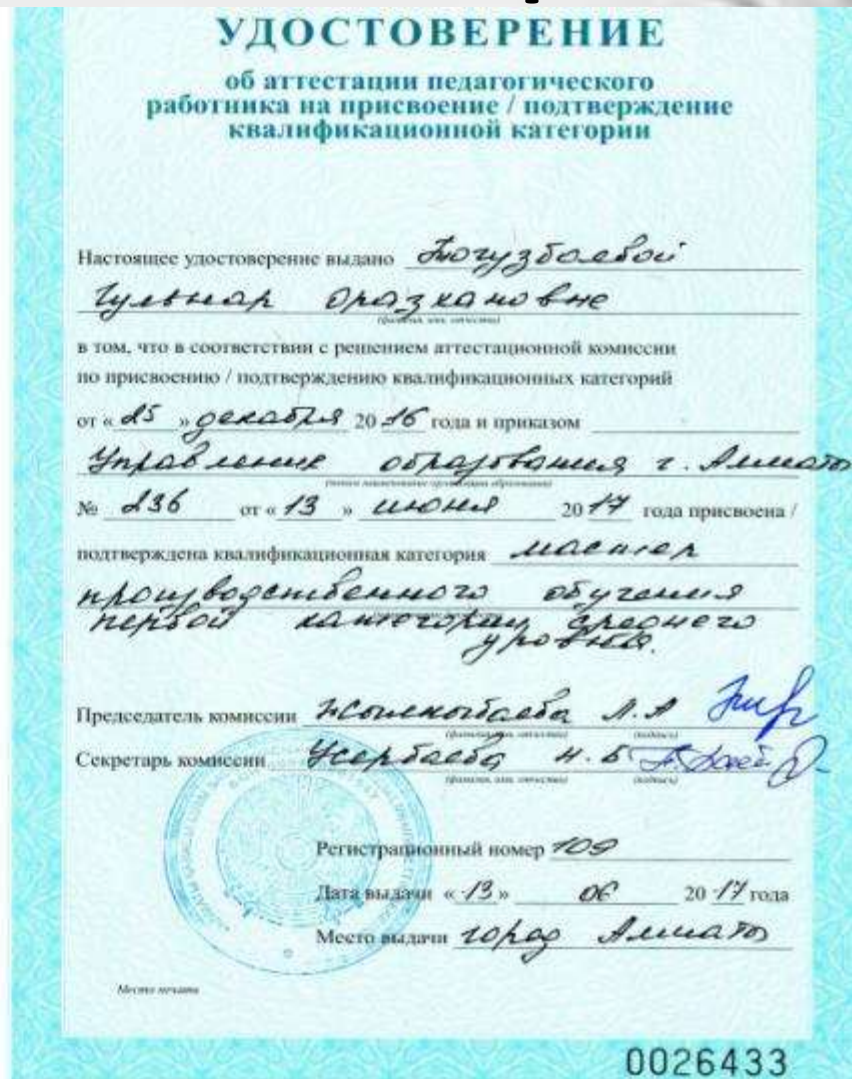 УДОСТОВЕРЕНИЕ
об аттестации педагогического
работника на присвоение / подтверждение
квалификационной категории
Настоящее удостоверение выдано Тогузбаевой
Гульнар Оразхановне
(фамилия, имя, отчество)
в том, что в соответствии с решением аттестационной комиссии
по присвоению / подтверждению квалификационных категорий
от « 25 » декабря 20 16 года и приказом
Управление образования г. Алматы
(полное наименование организации образования)
№ 236 от « 13 » июня 20 17 года присвоена /
подтверждена квалификационная категория мастер
производственного обучения
первой категории среднего
уровня.
Председатель комиссии Жылкыбаева Л.А
(фамилия, имя, отчество) (подпись)
Секретарь комиссии Усербаева Н.Б
(фамилия, имя, отчество) (подпись)
Регистрационный номер 109
Дата выдачи « 13 » 06 20 17 года
Место выдачи город Алматы
Место печати
0026433